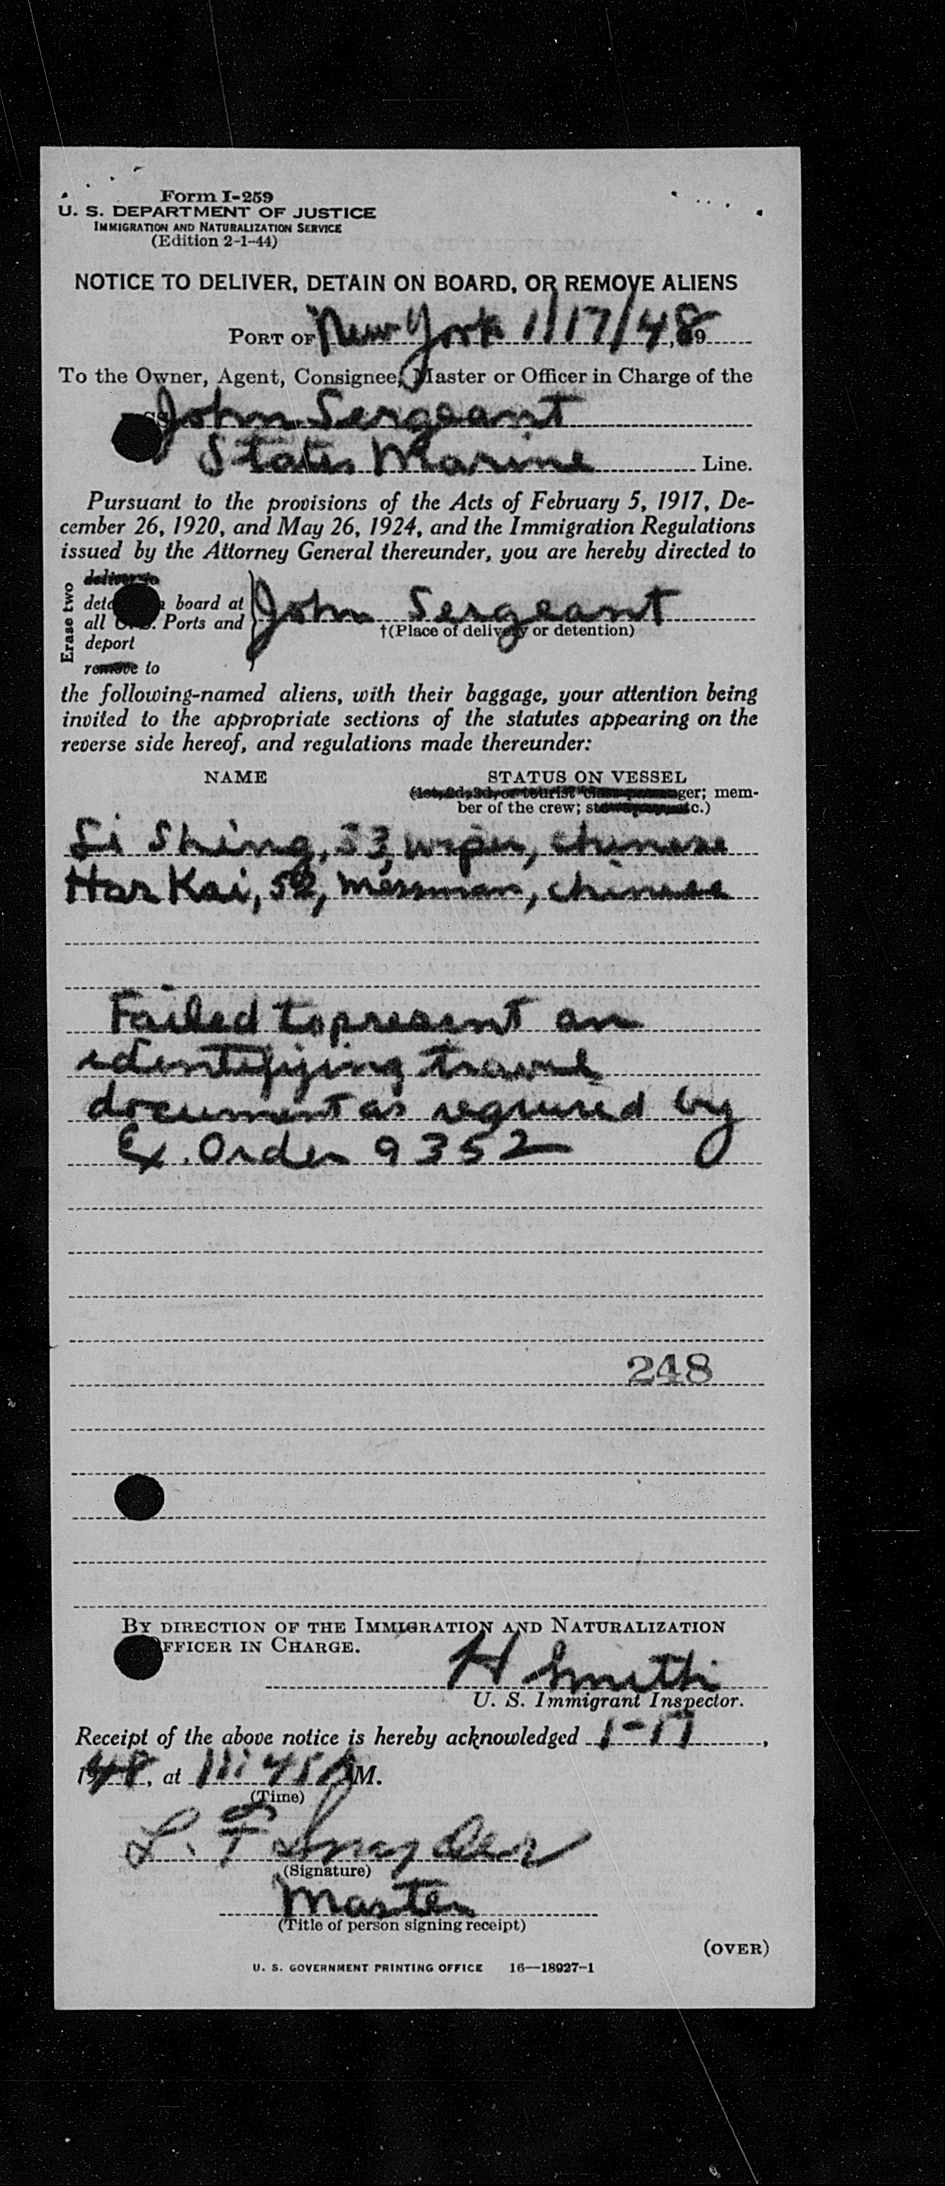 Form I-259
U. S. DEPARTMENT OF JUSTICE
IMMIGRATION AND NATURALIZATION SERVICE
(Edition 2-1-44)
NOTICE TO DELIVER, DETAIN ON BOARD, OR REMOVE ALIENS
PORT OF New York 1/17/48
To the Owner, Agent, Consignee, Master or Officer in Charge of the
SS John Sergeant
States Marine Line.
Pursuant to the provisions of the Acts of February 5, 1917, De-
cember 26, 1920, and May 26, 1924, and the Immigration Regulations
issued by the Attorney General thereunder, you are hereby directed to
Erase two
deliver to
board at
all U.S. Ports and
deport
remove to
John Sergeant
†(Place of delivery or detention)
the following-named aliens, with their baggage, your attention being
invited to the appropriate sections of the statutes appearing on the
reverse side hereof, and regulations made thereunder:
NAME STATUS ON VESSEL
(1st, 2d, 3d, or tourist class passenger; mem-
ber of the crew; stowaway, etc.)
Li Shing, 33, wiper, chinese
Har Kai, 52, messman, chinese
Failed to present an
identifying travel
document as required by
Ex. Order 9352
248
BY DIRECTION OF THE IMMIGRATION AND NATURALIZATION
OFFICER IN CHARGE.
H Smith
U. S. Immigrant Inspector.
Receipt of the above notice is hereby acknowledged 1-17,
1948, at 11:45 AM.
(Time)
L. F Snyder
(Signature)
Master
(Title of person signing receipt)
(OVER)
U. S. GOVERNMENT PRINTING OFFICE 16—18927-1